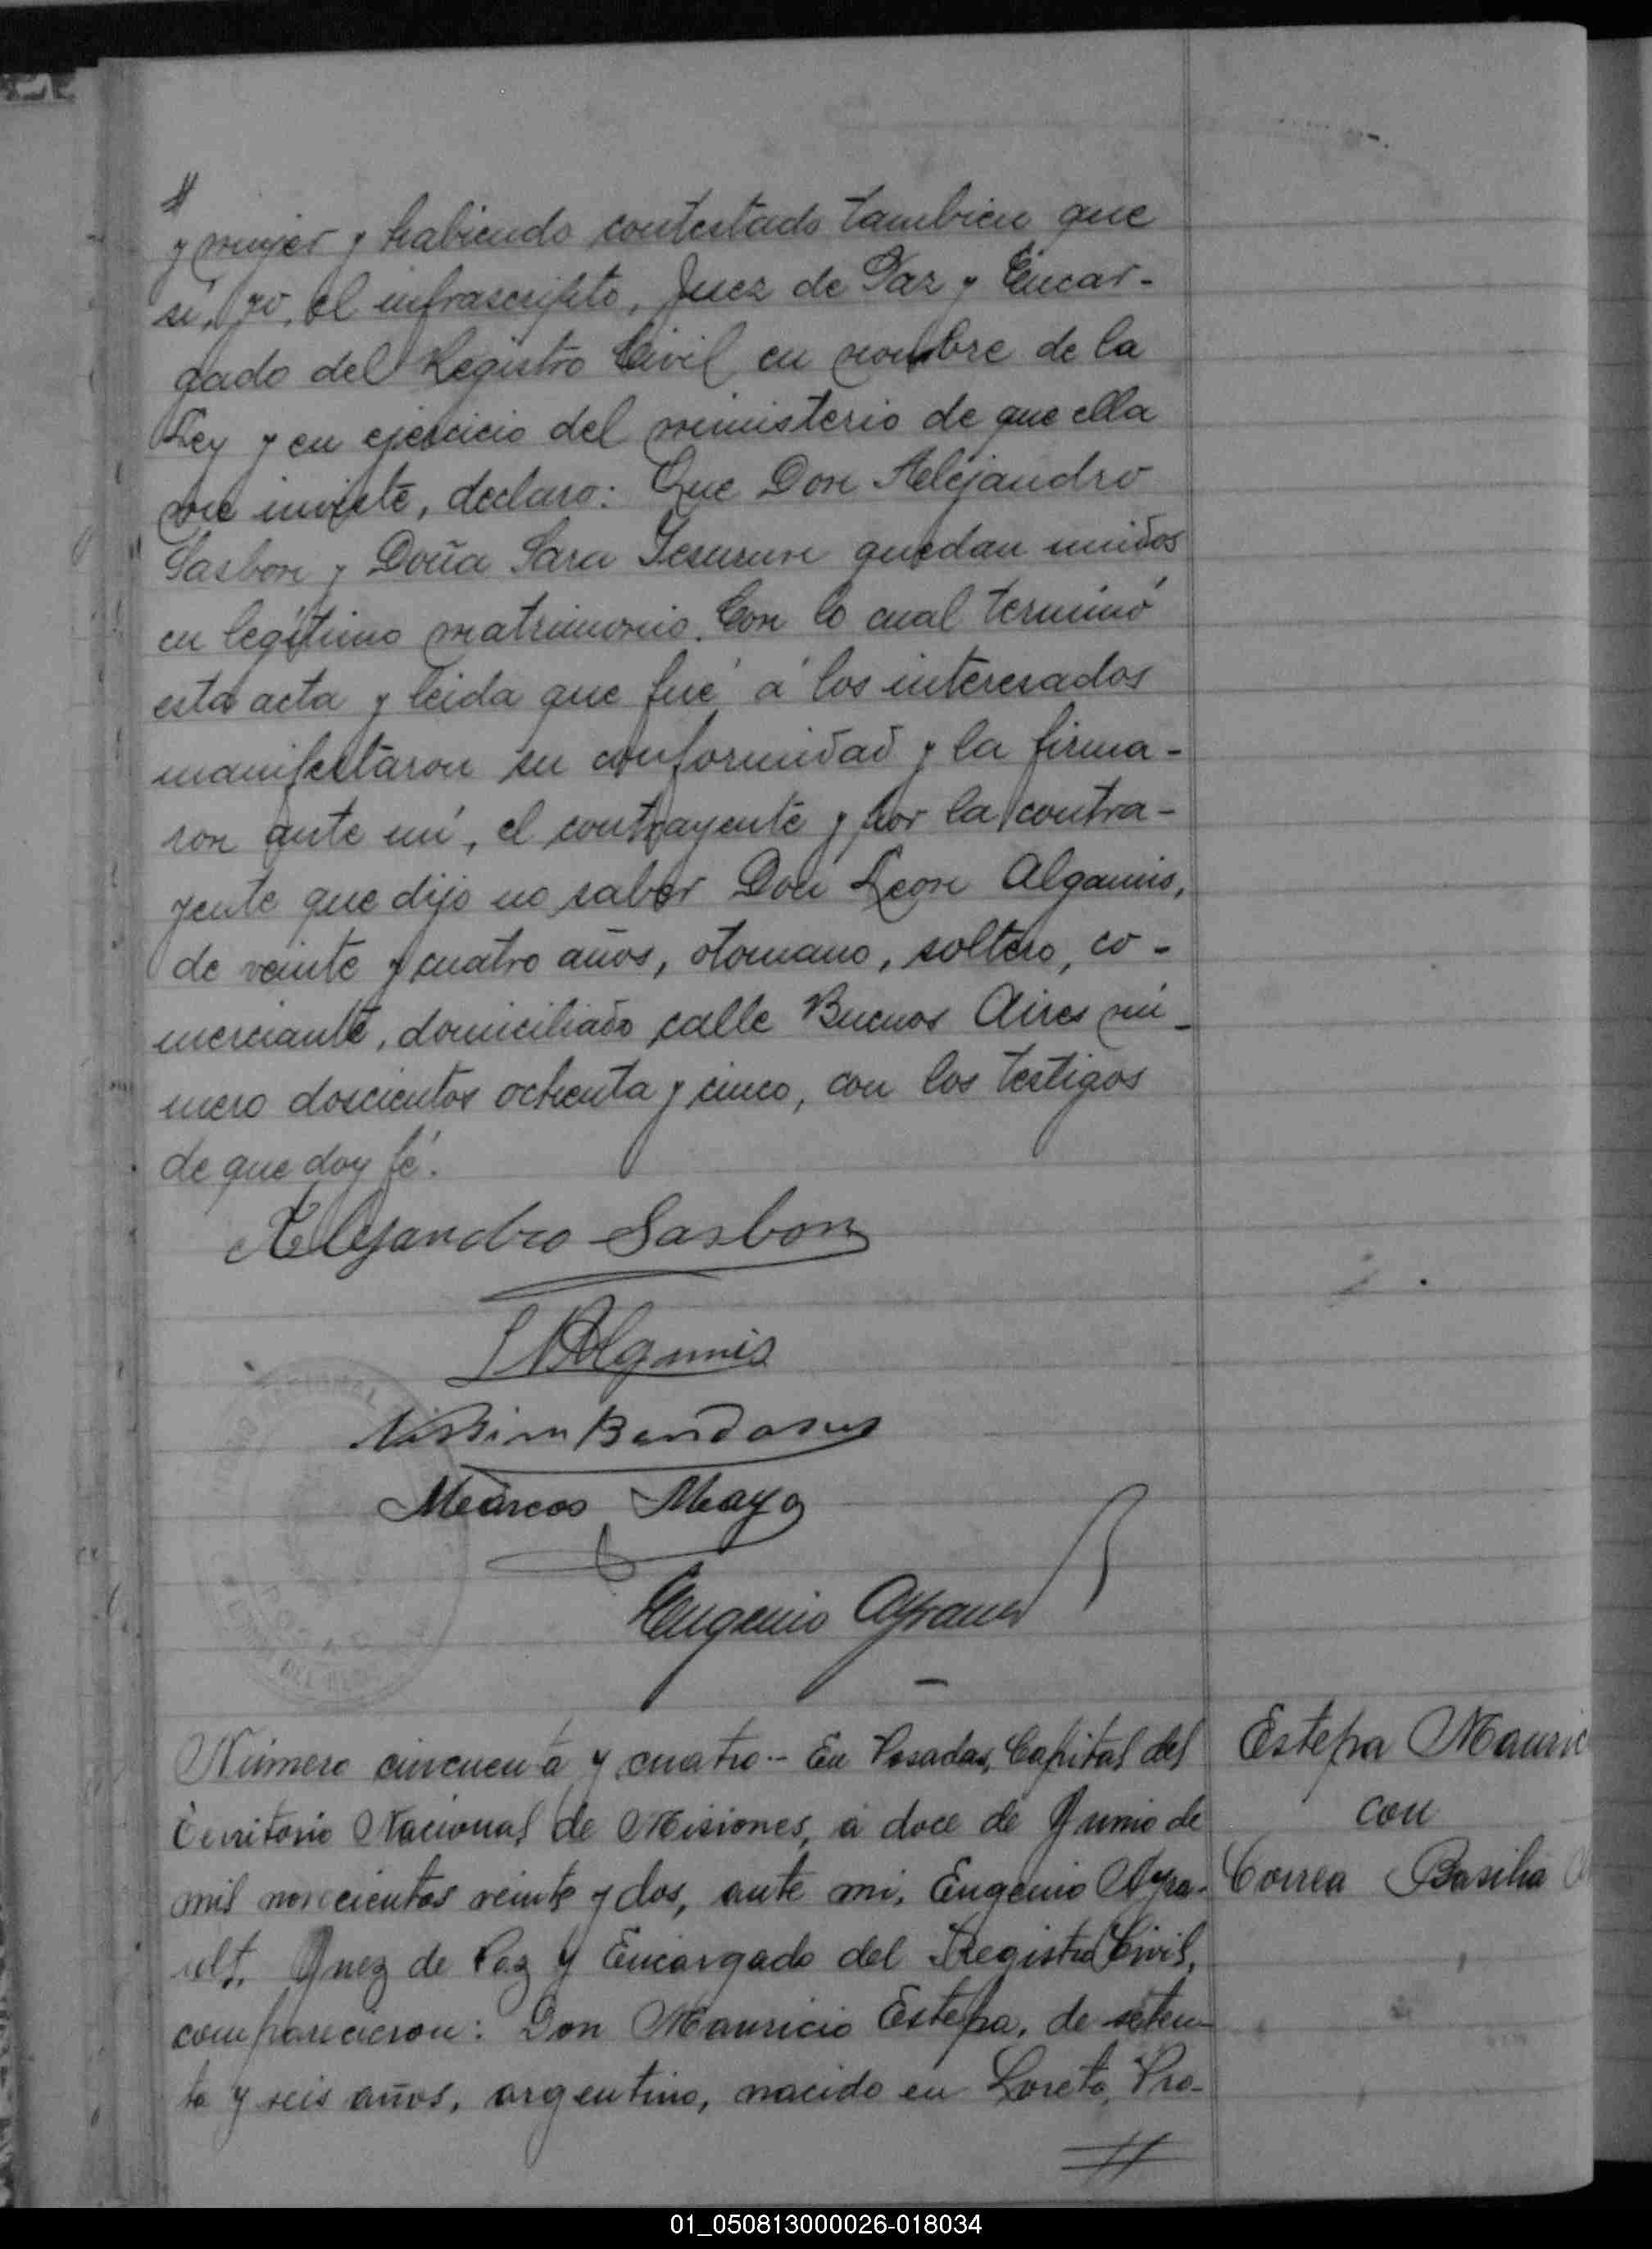 y mujer y habiendo contestado tambien que
sí, yo, el infrascripto, Juez de Paz y Encar-
gado del Registro Civil en nombre de la
Ley y en ejercicio del ministerio de que ella
me inviste, declaro: Que Don Alejandro
Sasbon y Doña Sara Jesurun quedan unidos
en legítimo matrimonio. Con lo cual terminó
esta acta y leida que fué á los interesados
manifestaron su conformidad y la firma-
ron ante mí, el contrayente y por la contra-
yente que dijo no saber Don Leon Algamis,
de veinte y cuatro años, otomano, soltero, co-
merciante, domiciliado calle Buenos Aires nú-
mero doscientos ochenta y cinco, con los testigos
de que doy fé.
Alejandro Sasbon
Algamis
Marcos Mayo
Eugenio
Número cincuenta y cuatro.- En Posadas, Capital del
Territorio Nacional de Misiones, á doce de Junio de
mil novecientos veinte y dos, ante mi, Eugenio Ayra-
ult, Juez de Paz y Encargado del Registro Civil,
comparecieron: Don Mauricio Estepa, de seten-
ta y seis años, argentino, nacido en Loreto, Pro-
Estepa Mauric
con
Correa Basilia
01_050813000026-018034